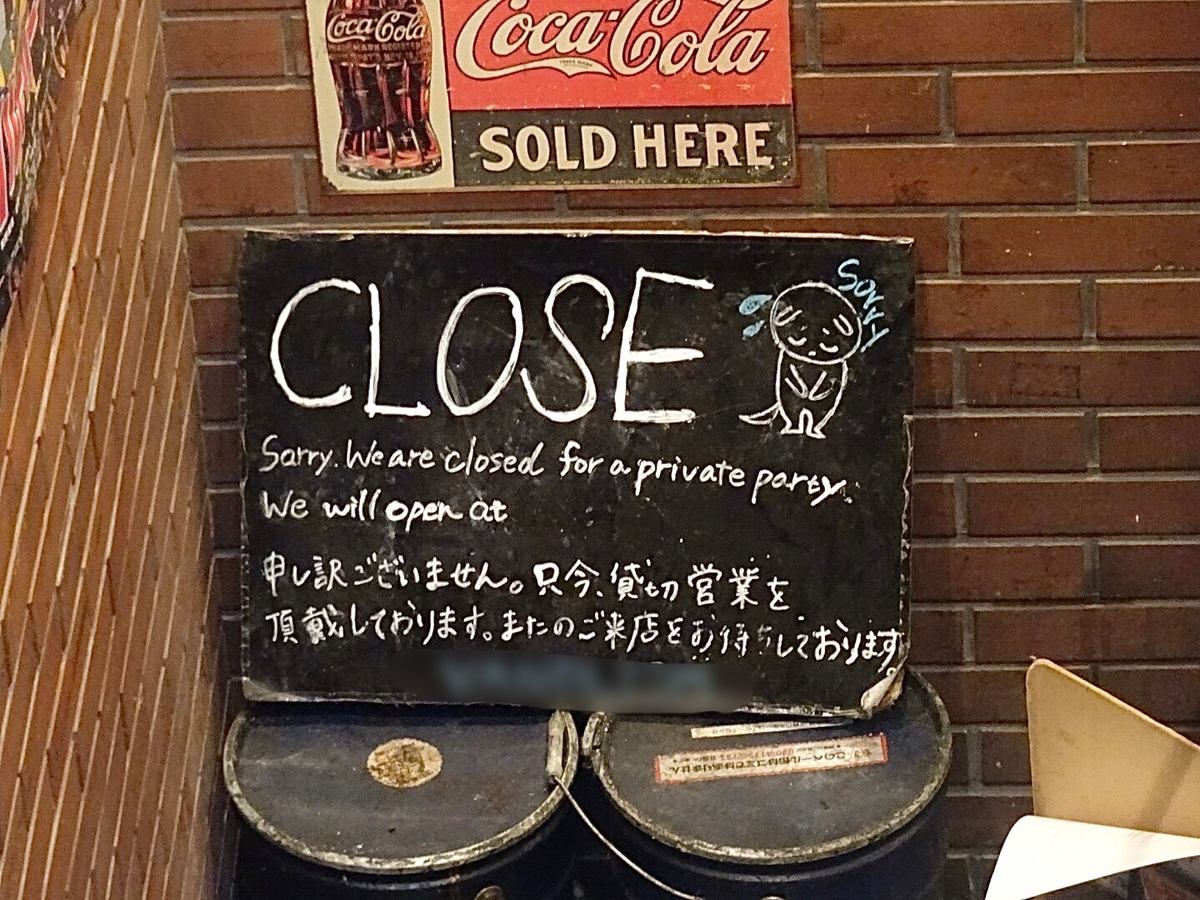 Coca-Cola
Coca-Cola
SOLD HERE
CLOSE
Sorry
Sorry. We are closed for a private party.
We will open at
申し訳ございません。只今、貸切営業を
頂戴しております。またのご来店をお待ちしております。
このペール缶はゴミではありません